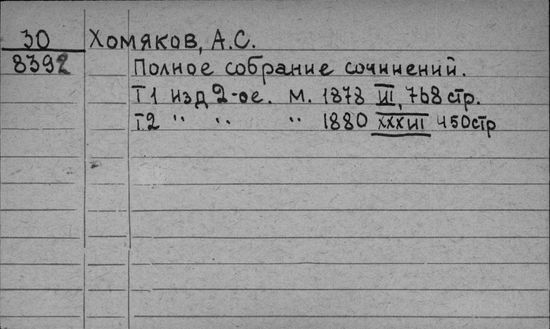 30 Хомяков, А.С.
8392 Полное собрание сочинений.
Т1 изд 2-ое. М. 1878 VI, 768 стр.
Т2 " " " 1880 XXXVI 450 стр